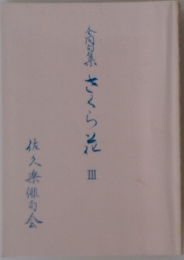 合同句集
さくら花
III
佐久楽俳句会